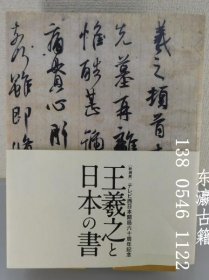 羲之頓首
先墓再離
惟酷甚號
痛貫心肝
奈何雖即脩
〔特別展〕テレビ西日本開局六十周年記念
王羲之と
日本の書
东瀛古籍
138 0549 1122